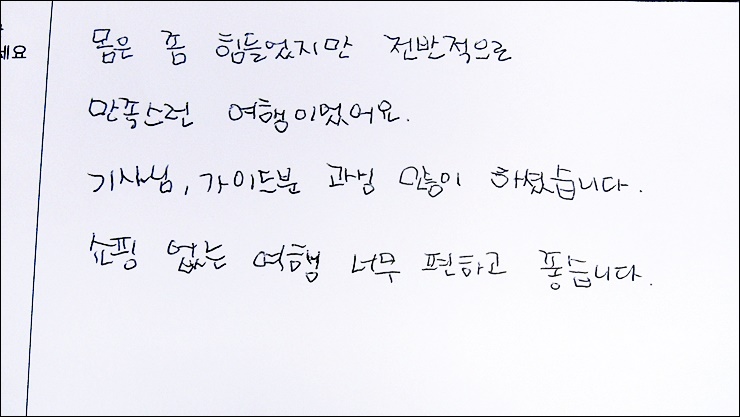 세요
몸은 좀 힘들었지만 전반적으로
만족스런 여행이었어요.
기사님, 가이드분 고생 많이 하셨습니다.
쇼핑 없는 여행 너무 편하고 좋습니다.